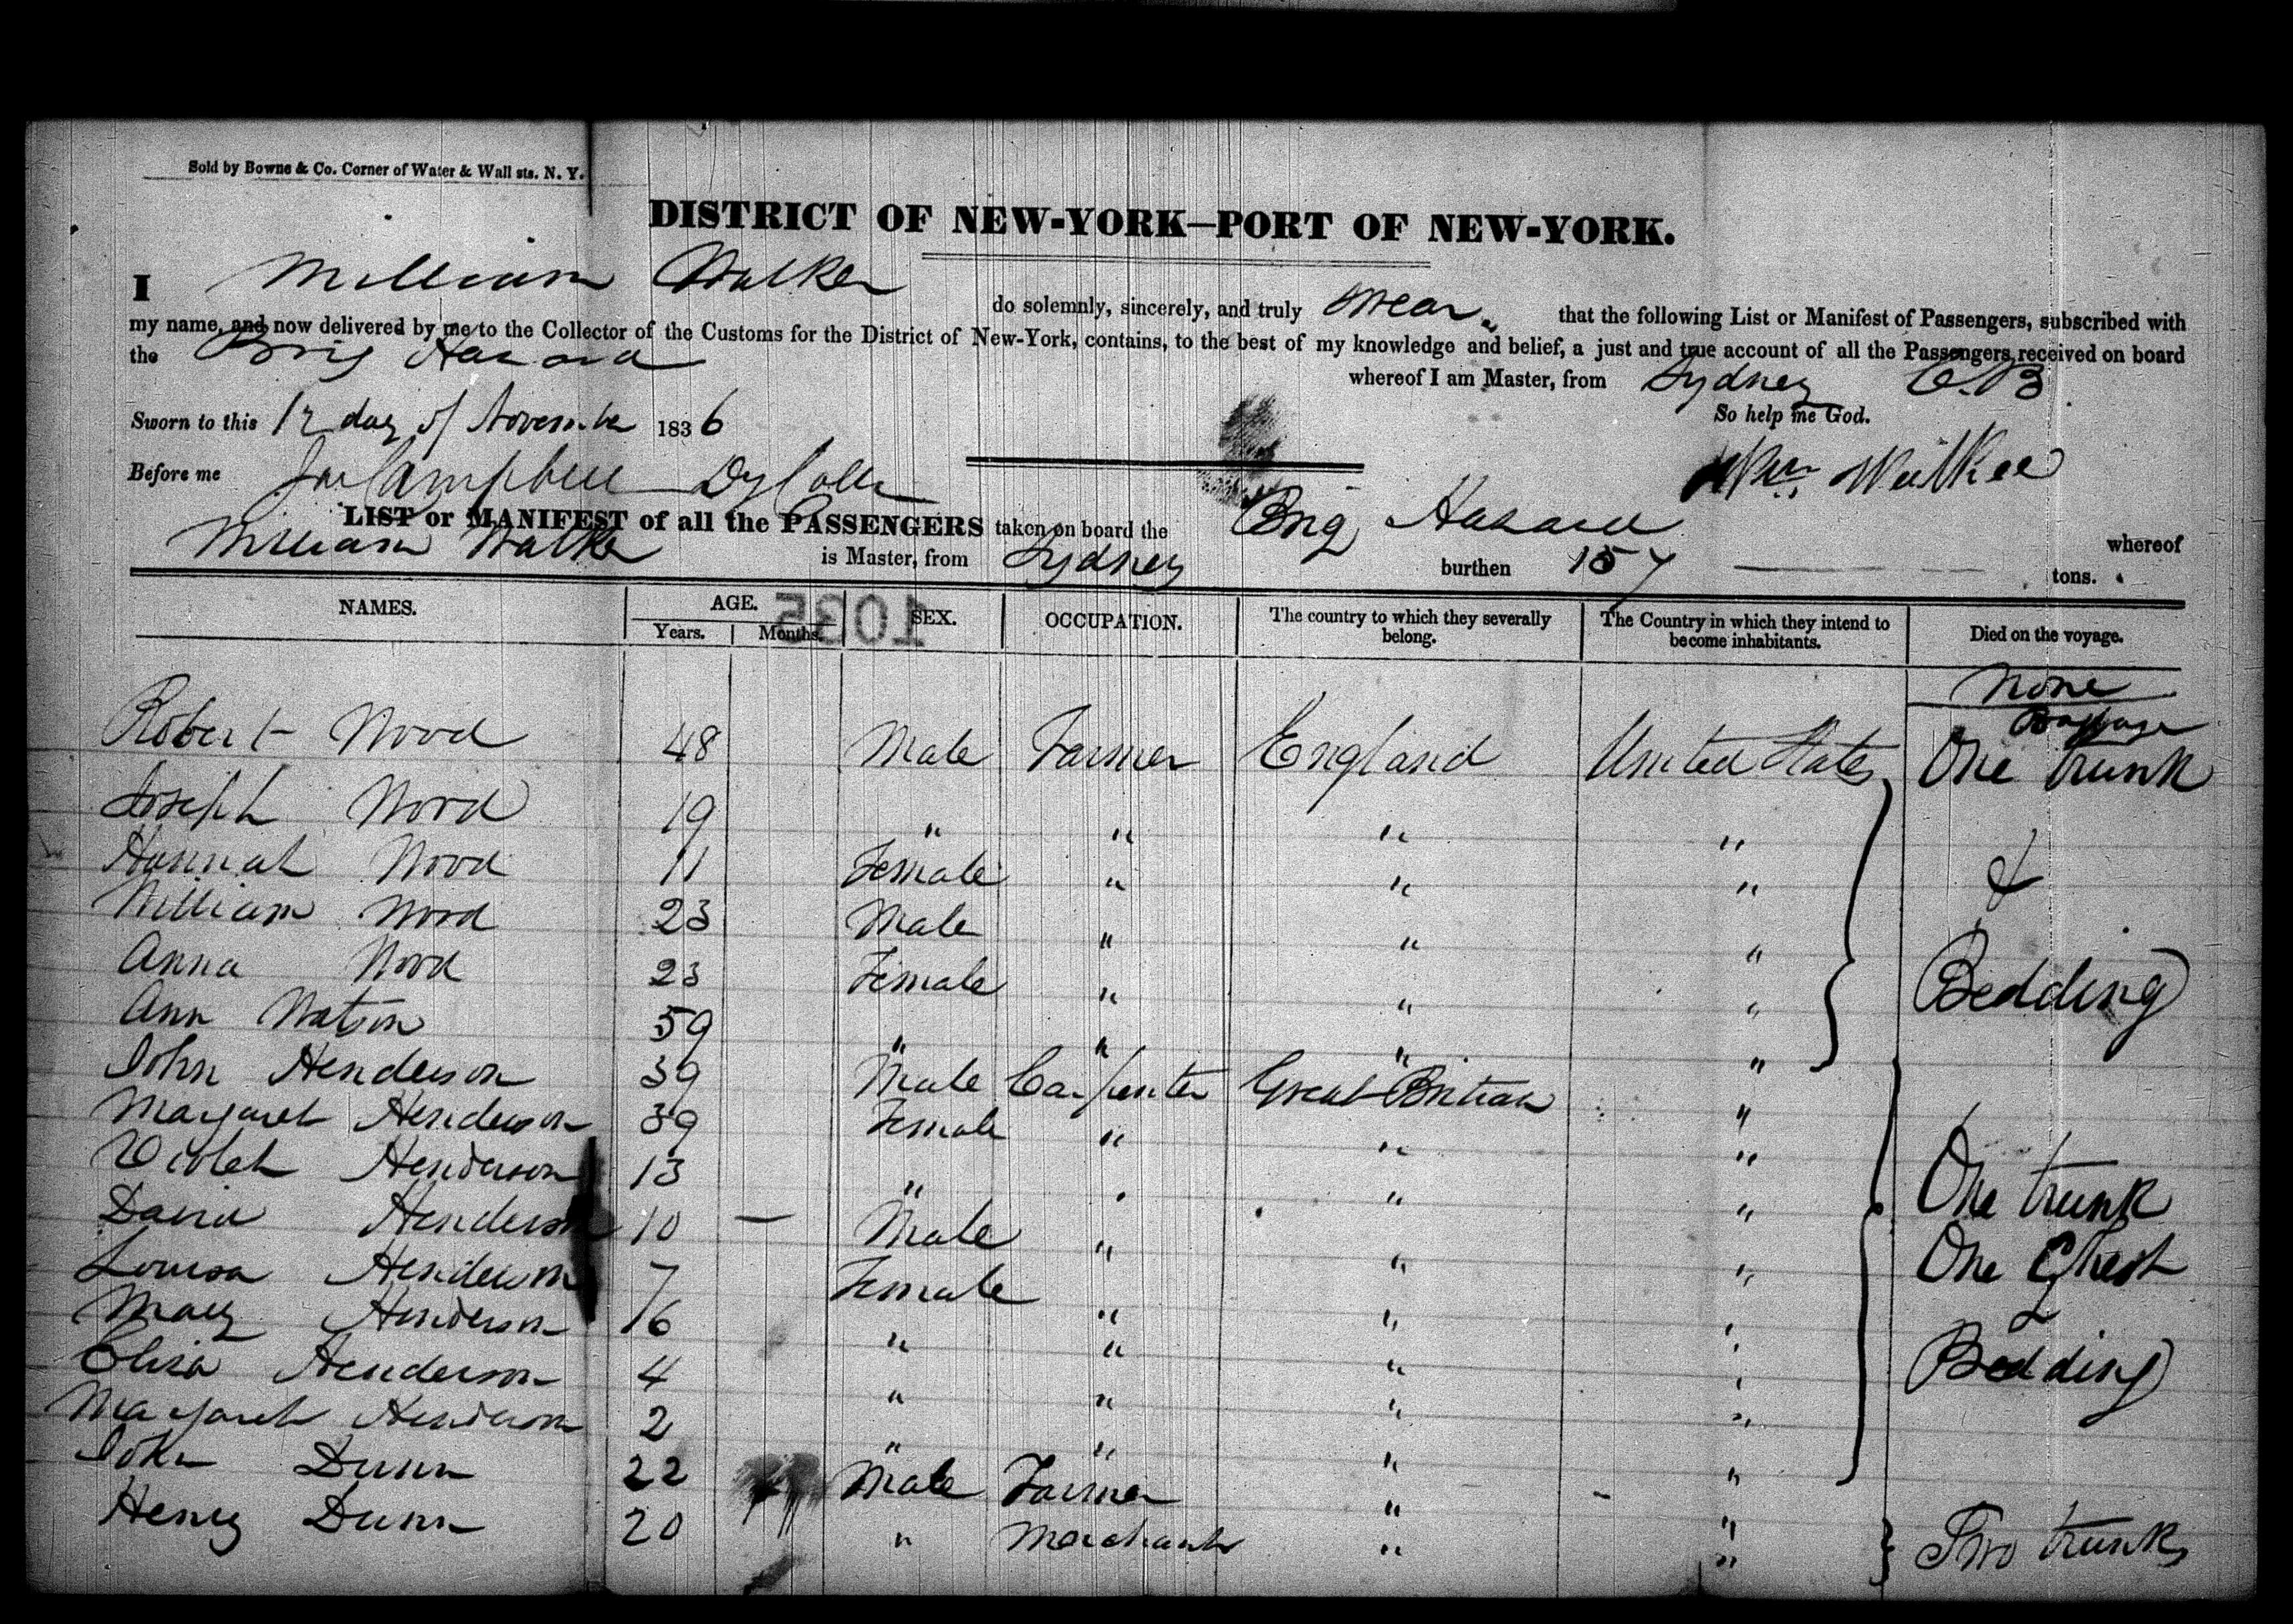 Sold by Bowne & Co. Corner of Water & Wall sts. N. Y.
DISTRICT OF NEW-YORK—PORT OF NEW-YORK.
I William Walker do solemnly, sincerely, and truly swear that the following List or Manifest of Passengers, subscribed with
my name, and now delivered by me to the Collector of the Customs for the District of New-York, contains, to the best of my knowledge and belief, a just and true account of all the Passengers received on board
the Brig Hazard whereof I am Master, from Sydney C.B
So help me God.
Sworn to this 12 day of November 1836
Wm Walker
Before me Campbell Dy Colle
LIST or MANIFEST of all the PASSENGERS taken on board the Brig Hazard whereof
William Walker is Master, from Sydney burthen 157 tons.
1035
NAMES. AGE. SEX. OCCUPATION. The country to which they severally belong. The Country in which they intend to become inhabitants. Died on the voyage.
Years. Months.
None
Baggage
Robert Wood 48 Male Farmer England United States One trunk
Joseph Wood 19 " " " "
Hannah Wood 11 Female " " " &
William Wood 23 Male " " "
Anna Wood 23 Female " " " Bedding
Ann Watson 59 " " " "
John Henderson 39 Male Carpenter Great Britian "
Margaret Henderson 39 Female " " "
Violet Henderson 13 " " " " One trunk
David Henderson 10 — Male " " " One Chest
Louisa Henderson 7 Female " " " &
Mary Henderson 16 " " " "
Eliza Henderson 4 " " " " Bedding
Margaret Henderson 2 " " " "
John Dunn 22 Male Farmer " "
Henry Dunn 20 " Merchant " " Two trunks